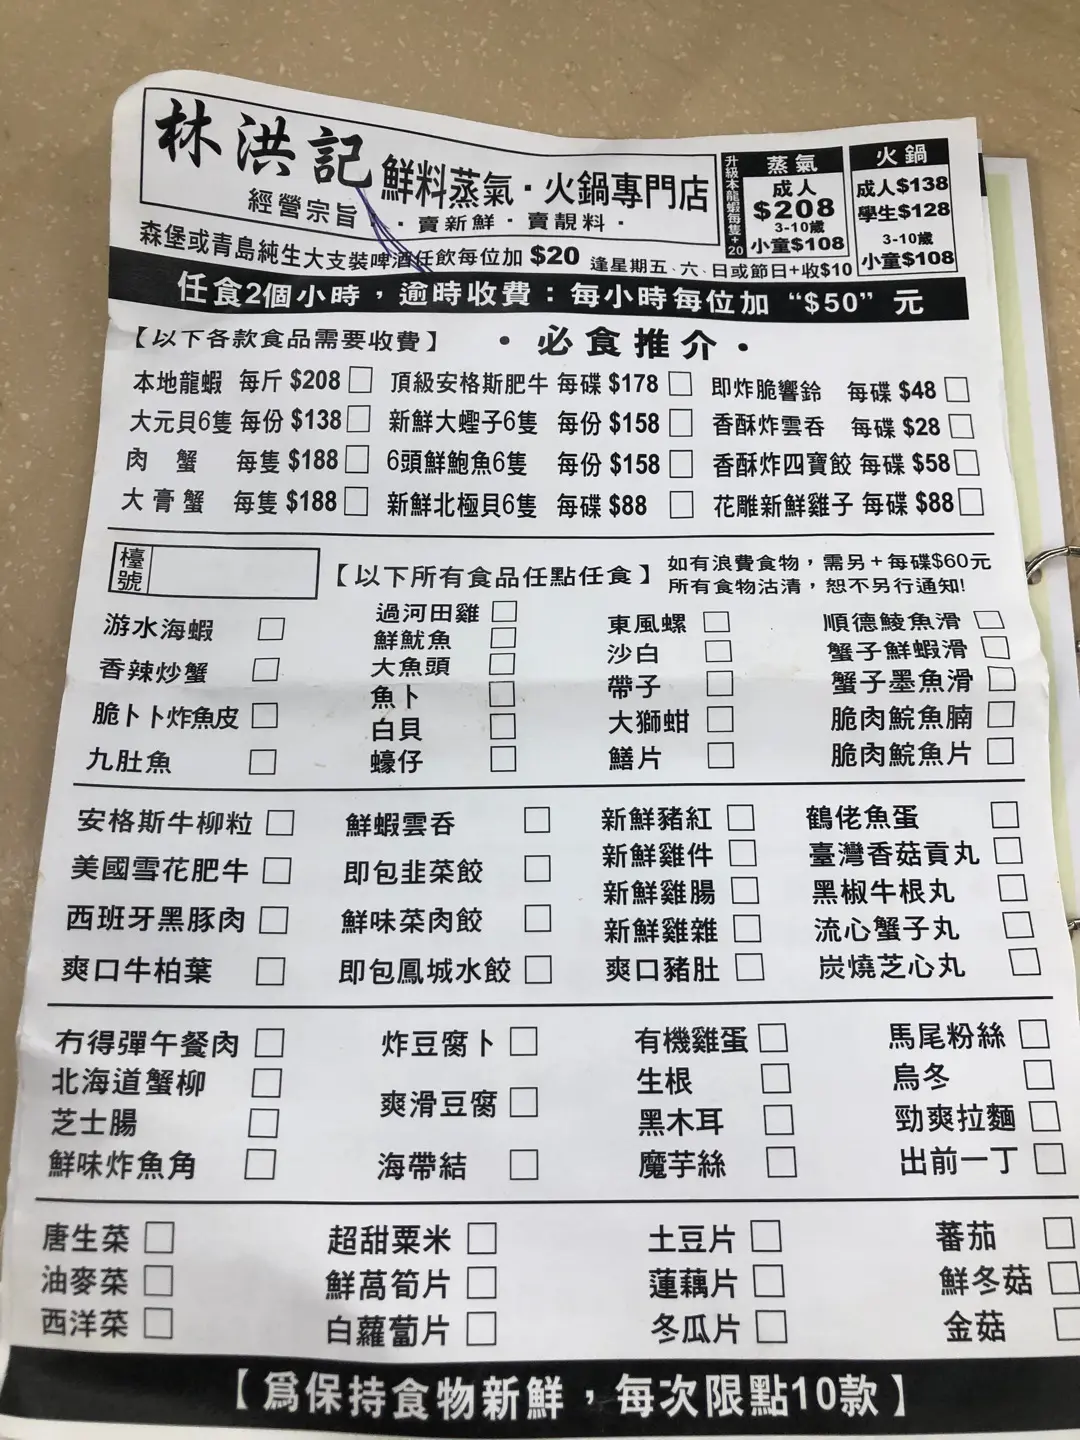 林洪記 鮮料蒸氣·火鍋專門店
經營宗旨 · 賣新鮮 · 賣靚料 ·
升級本龍蝦每隻+20
蒸氣
成人
$208
3-10歲
小童$108
火鍋
成人$138
學生$128
3-10歲
小童$108
森堡或青島純生大支裝啤酒任飲每位加 $20 逢星期五、六、日或節日+收$10
任食2個小時，逾時收費：每小時每位加 “$50” 元
【以下各款食品需要收費】 ·必食推介·
本地龍蝦 每斤 $208 頂級安格斯肥牛 每碟 $178 即炸脆響鈴 每碟 $48
大元貝6隻 每份 $138 新鮮大蟶子6隻 每份 $158 香酥炸雲吞 每碟 $28
肉蟹 每隻 $188 6頭鮮鮑魚6隻 每份 $158 香酥炸四寶餃 每碟 $58
大膏蟹 每隻 $188 新鮮北極貝6隻 每碟 $88 花雕新鮮雞子 每碟 $88
檯號 【以下所有食品任點任食】
如有浪費食物，需另+每碟$60元
所有食物沽清，恕不另行通知!
游水海蝦
香辣炒蟹
脆卜卜炸魚皮
九肚魚
過河田雞
鮮魷魚
大魚頭
魚卜
白貝
蠔仔
東風螺
沙白
帶子
大獅蚶
鱔片
順德鯪魚滑
蟹子鮮蝦滑
蟹子墨魚滑
脆肉鯇魚腩
脆肉鯇魚片
安格斯牛柳粒
美國雪花肥牛
西班牙黑豚肉
爽口牛柏葉
鮮蝦雲吞
即包韭菜餃
鮮味菜肉餃
即包鳳城水餃
新鮮豬紅
新鮮雞件
新鮮雞腸
新鮮雞雜
爽口豬肚
鶴佬魚蛋
臺灣香菇貢丸
黑椒牛根丸
流心蟹子丸
炭燒芝心丸
冇得彈午餐肉
北海道蟹柳
芝士腸
鮮味炸魚角
炸豆腐卜
爽滑豆腐
海帶結
有機雞蛋
生根
黑木耳
魔芋絲
馬尾粉絲
烏冬
勁爽拉麵
出前一丁
唐生菜
油麥菜
西洋菜
超甜粟米
鮮萵筍片
白蘿蔔片
土豆片
蓮藕片
冬瓜片
蕃茄
鮮冬菇
金菇
【爲保持食物新鮮，每次限點10款】